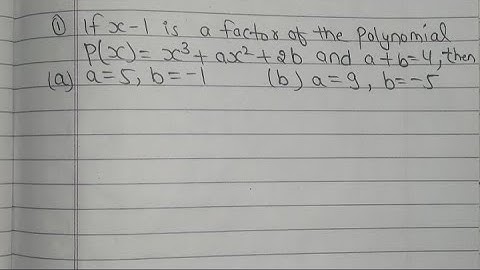 ① If x-1 is a factor of the Polynomial
P(x) = x³ + ax² + 2b and a+b=4, then
(a) a=5, b=-1 (b) a=9, b=-5